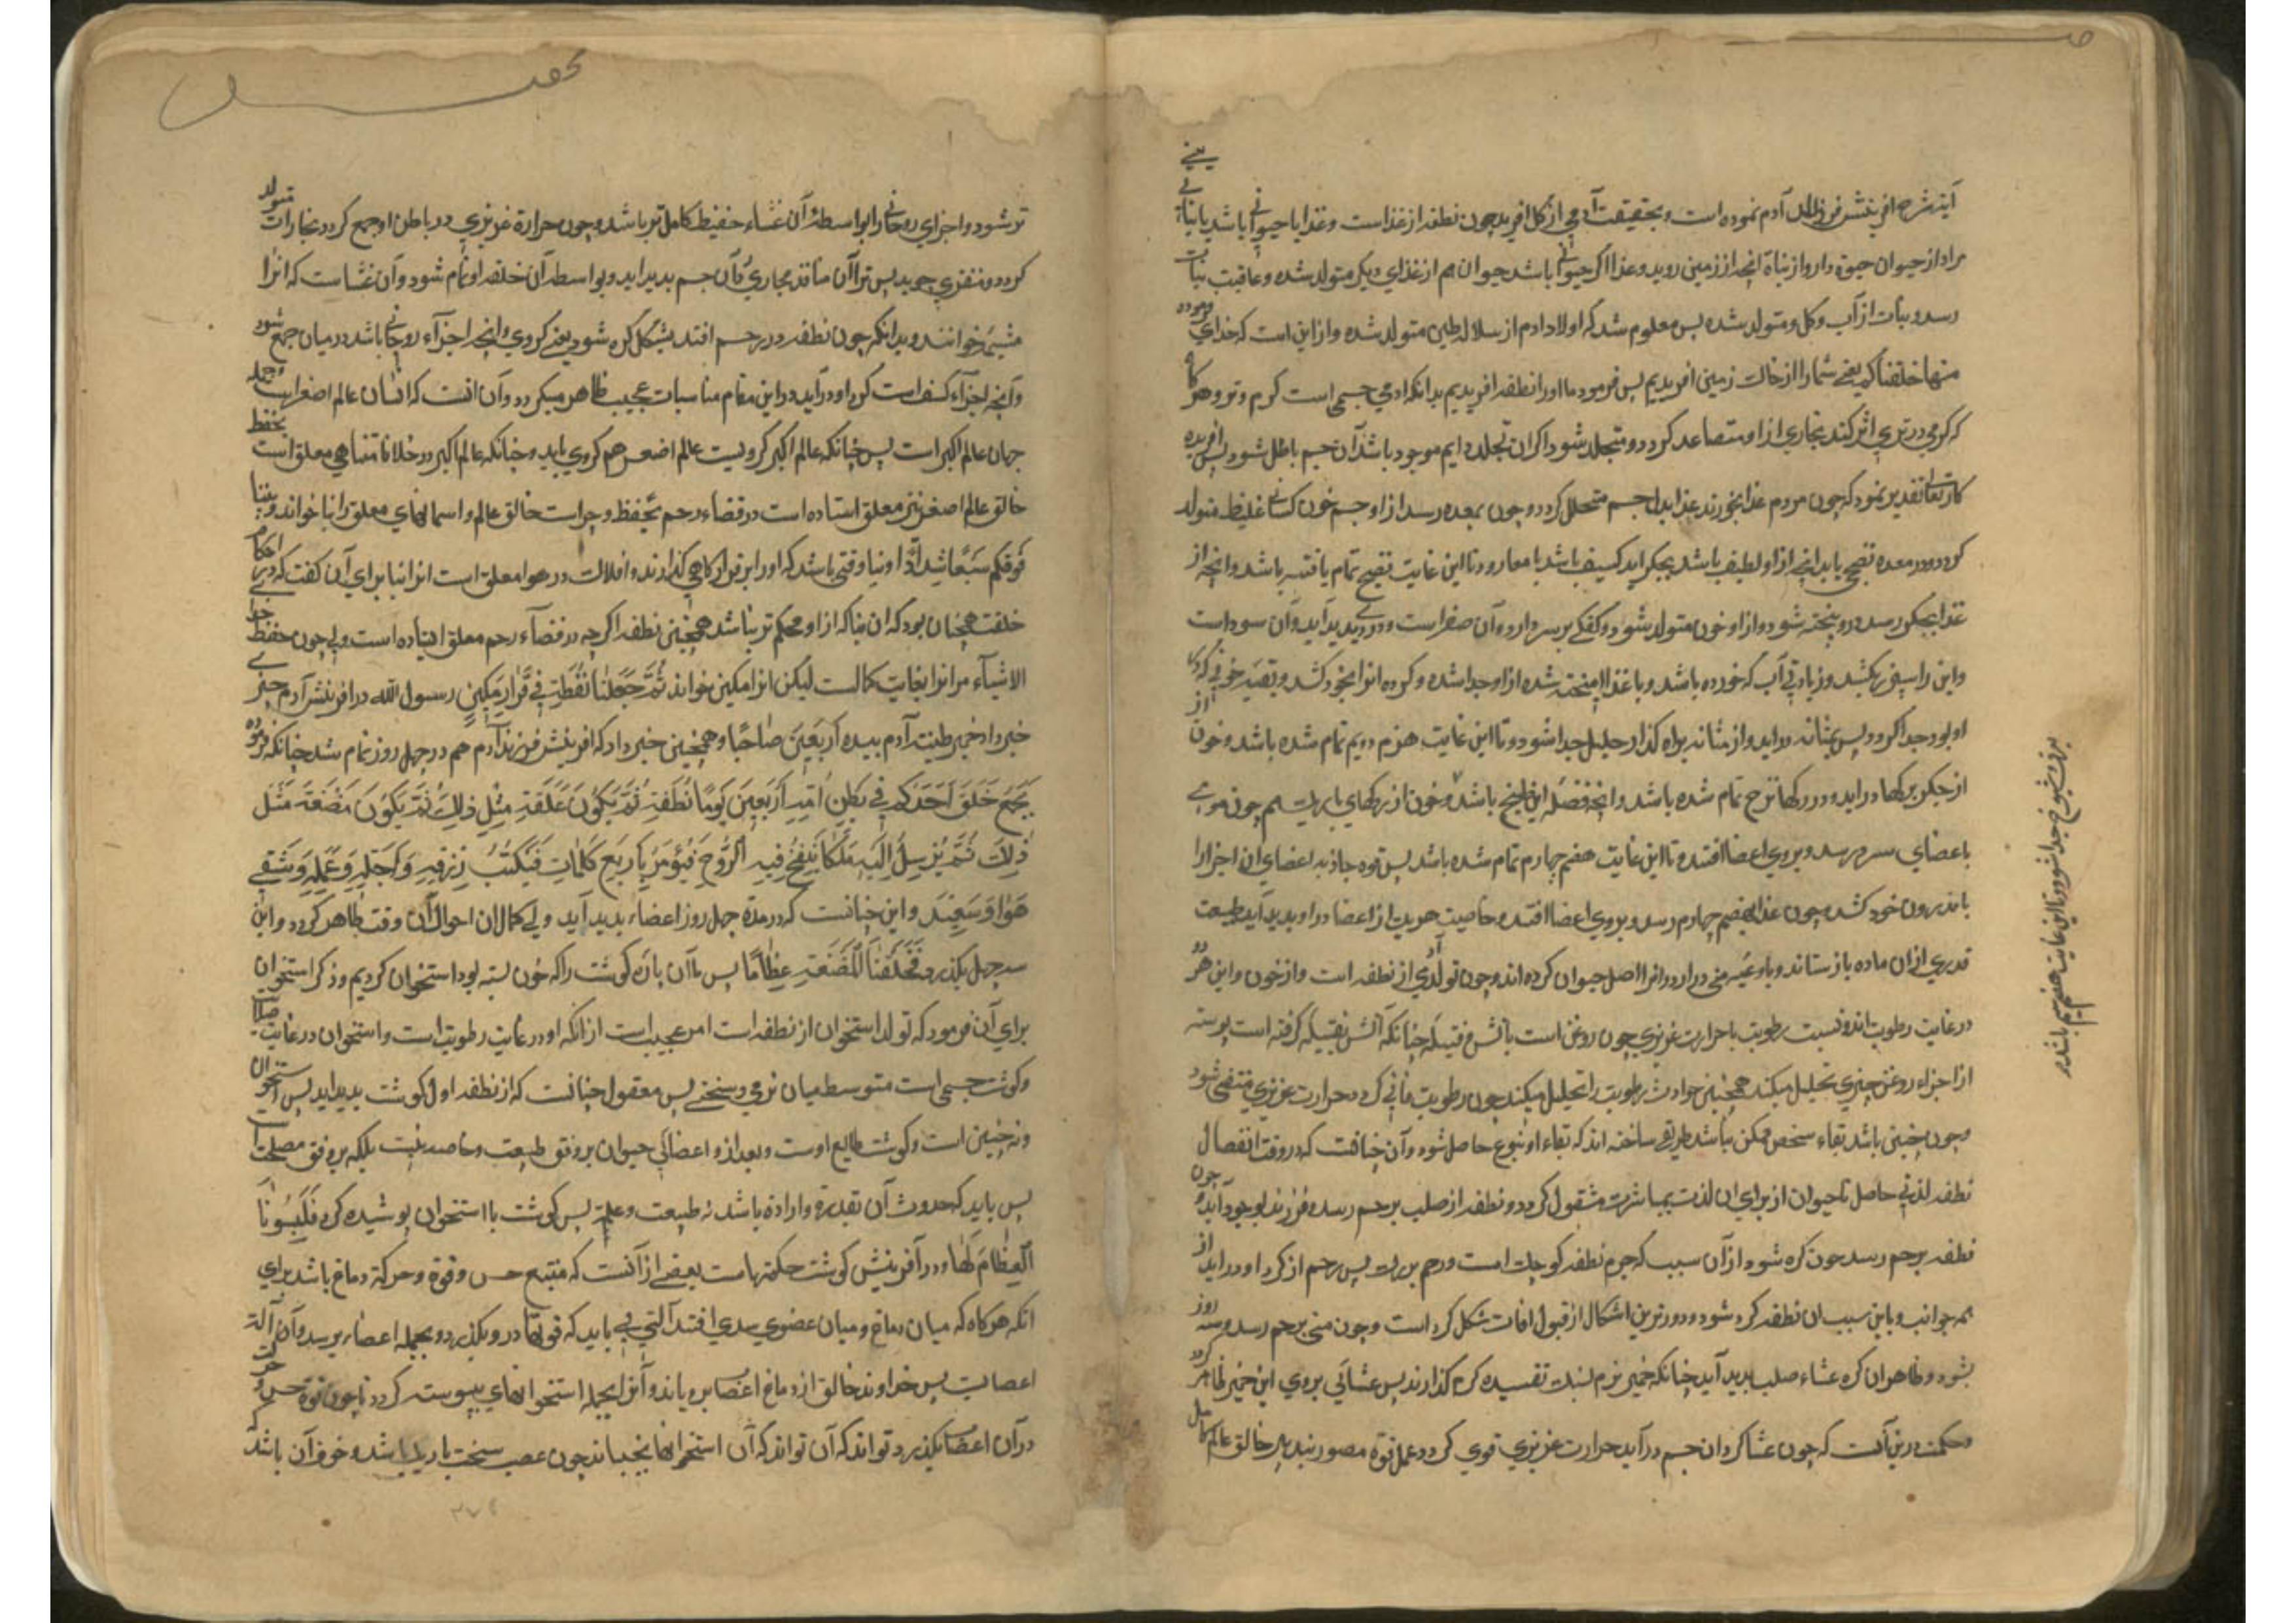 آیة شرح افرینش فرزندان آدم نموده است و بحقیقت آدمی از گل افریده چون نطفه از غذاست و غذا یا حیوانی باشد یا نباتی یعنی
مراد از حیوان حیوة دارد و از نباة انچه از زمین روید و غذا اگر حیوانی باشد حیوان هم از غذای دیکر متولد شده و عاقبت بنبات
رسد و نبات از آب و کل متولد شده پس معلوم شد که اولاد ادم از سلاله طین متولد شده و از این است که خدای فرموده
منها خلقناکم یعنی شما را از خاک زمین افریدیم پس فرمود ما او را نطفه افریدیم بدانکه ادمی جسمی است کرم و تر و هر کاه
که کرمی در تری اثر کند بخاری از او متصاعد کردد و متحلل شود اکر ان تحلل دایم موجود باشد آن جسم باطل شود پس افریده
کار تعالی تقدیر نمود که چون مردم غذا بخورند غذا بدل جسم متحلل کردد و چون بمعده رسد از او جسم چون کشکابی غلیظ متولد
کردد و در معده نضجی یابد انچه از او لطیف باشد بجکر اید کسیف باشد بامعا رود تا این غایت نضج تمام یافته باشد و انچه از
غذا بجکر رسد در و پخته شود و از او خون متولد شود و کفکی بر سر دارد و آن صفراست و دردی پدید آید و آن سوداست
و این را سپرز بکشد و زیادتی آب که خورده باشد و با غذا امیخته شده از او جدا شده و کرده انرا بخود کشد و بقیه خونی که در
او بود جدا کردد پس بمثانه دراید و از مثانه براه کذار حلیل جدا شود و تا این غایت هضم دویم تمام شده باشد و خون از
از جکر برکها دراید و در رکها نضج تمام شده باشد و انچه فضله این طبخ باشد و خون از رکهای باریک هم چون موی
باعضای سر در رسد و بروی اعضا افتد تا این غایت هضم چهارم تمام شده باشد پس قوه جاذبه اعضای ان اجزا را
باندرون خود کشد و چون غذا بهضم چهارم رسد و بروی اعضا افتد و خاصیت هریک از اعضا در او پدید آید طبیعت
قدری از ان ماده باز ستاند و باوعیه منی در ارد و انرا اصل حیوان کرده اند و چون تولد آدمی از نطفه است و از خون و این هر دو
در غایت رطوبت اند و نسبت رطوبت با حرارت غریزی چون روغن است با آتش و فتیله چنانکه آتش بفتیله کرفته است پیوسته
از اجزاء روغن چیزی تحلیل میکند همچنین حوادث رطوبت را تحلیل میکند چون رطوبت فانی کردد حرارت غریزی منتفی شود
و چون چنین باشد بقاء شخص ممکن نباشد طریقی ساخته اند که بقاء او بنوع حاصل شود و آن چنانست که در وقت انفصال
نطفه لذتی حاصل تا حیوان از برای ان لذت بمباشرت مشغول کردد و نطفه از صلب برحم رسد و فرزند بوجود آید و چون
نطفه برحم رسد چون کره شود از آن سبب که جرم نطفه کوچک است و رحم بزرک پس رحم از کرد او دراید از
همه جوانب و باین سبب ان نطفه کرد شود و دورترین اشکال از قبول افات شکل کرد است و چون منی برحم رسد و سه روز
بشود و ظاهر ان کره غشاء صلب پدید آید چنانکه خمیر نرم بسنک تفسیده کرم کذارند پس غشائی بروی این خمیر ظاهر کردد
و حکمت درین آنست که چون غشا کرد ان جسم درآید حرارت غریزی قوی کردد و عمل قوة مصوره بتدبیر خالق عالم کامل
بریق شیوخ جدا شود و تا این غایت هضم سیم باشد
تر شود و اجزای روحانی را بواسطه آن غشاء حفیظ کامل تر باشد و چون حرارة غریزی در باطن او جمع کردد بخارات متولد
کردد و منفذی جوید پس تراآن مانند مجاری در آن جسم پدید اید و بواسطه آن خلقه او تمام شود و آن غشاست که انرا
مشیمه خوانند و بدانکه چون نطفه در رحم افتد بشکل کره شود یعنی کروی و انچه اجزآء روحانی باشد در میان جمع شود
و آنچه اجزآء کسف است کرد او درآید در این مقام مناسبات عجیب ظاهر میکردد و آن انست که انسان عالم اصغر است و جمله
جهان عالم اکبر است پس چنانکه عالم اکبر کرویست عالم اصغر هم کروی باید و چنانکه عالم اکبر در خلا نامتناهی معلق است بحفظ
خالق عالم اصغر نیز معلق استاده است در فضاء رحم بحفظ و حراست خالق عالم و اسمانهای معلق را بنا خواند و بنینا
فوقکم سبعا شدادا و بنا وقتی باشد که او را بر قرارکاهی کذارند و افلاک در هوا معلق است انرا بنا برای آن کفت که در احکام
خلقت همچنان بود که ان بنا که از او محکم تر نباشد همچنین نطفه اکرچه در فضآء رحم معلق افتاده است ولی چون حفظ خدا
الاشیآء مر انرا بغایت کمالست لیکن انرا مکین خواند ثُمَّ جَعَلْنَا نُطْفَةً فِي قَرَارٍ مَكِينٍ رسول الله در افرینش آدم چنین
خبر داد خمر طینت آدم بیده اربعین صباحا و همچنین خبر داد که افرینش فرزند آدم هم در چهل روز تمام شد چنانکه فرموده
یجمع خلق احدکم فی بطن امه اربعین یوما نطفة ثم یکون علقة مثل ذلک ثم یکون مضغة مثل
ذلک ثم یرسل الیه ملکا ینفخ فیه الروح فیؤمر باربع کلمات فیکتب رزقه و اجله و عمله و شقی
هو او سعید و این چنانست که در مدة چهل روز اعضاء پدید آید ولی کمال ان احوال آن وقت ظاهر کردد و این
سه چهل بکذرد فخلقنا المضغة عظاما پس ما آن پاره کوشت را که خون بسته بود استخوان کردیم و ذکر استخوان
برای آن فرمود که تولد استخوان از نطفه است امر عجیب است از انکه او در غایت رطوبت است و استخوان در غایت صلابت
و کوشت جسمی است متوسط میان نرمی و سختی پس معقول چنانست که از نطفه اول کوشت پدید اید پس استخوان
و نه چنین است و کوشت طالع اوست و بعد از و اعضائی حیوان بر وفق طبیعت و خاصه نیست بلکه بر وفق مصلحت است
پس باید که حدوث آن بقدرة و ارادة باشد نه طبیعت و علة پس کوشت با استخوان پوشیده کرد فکسونا
العظام لحما و در آفرینش کوشت حکمتهاست بعضی از آنست که منبع حس و قوة و حرکة دماغ باشد برای
انکه هر کاه که میان دماغ و میان عضوی سدی افتد آلتی می باید که قوتها در و بکذرد و بجمله اعضاء برسد و آن آلة
اعصابست پس خداوند خالق از دماغ اعصاب برویاند و آنرا بجمله استخوانهای پیوسته کردد تا چون قوة حس و حرکت
در آن اعضا بکذرد و تواند که آن تواند که آن استخوانها بجنباند چون عصب سخت باریک باشد و خوف آن باشد که